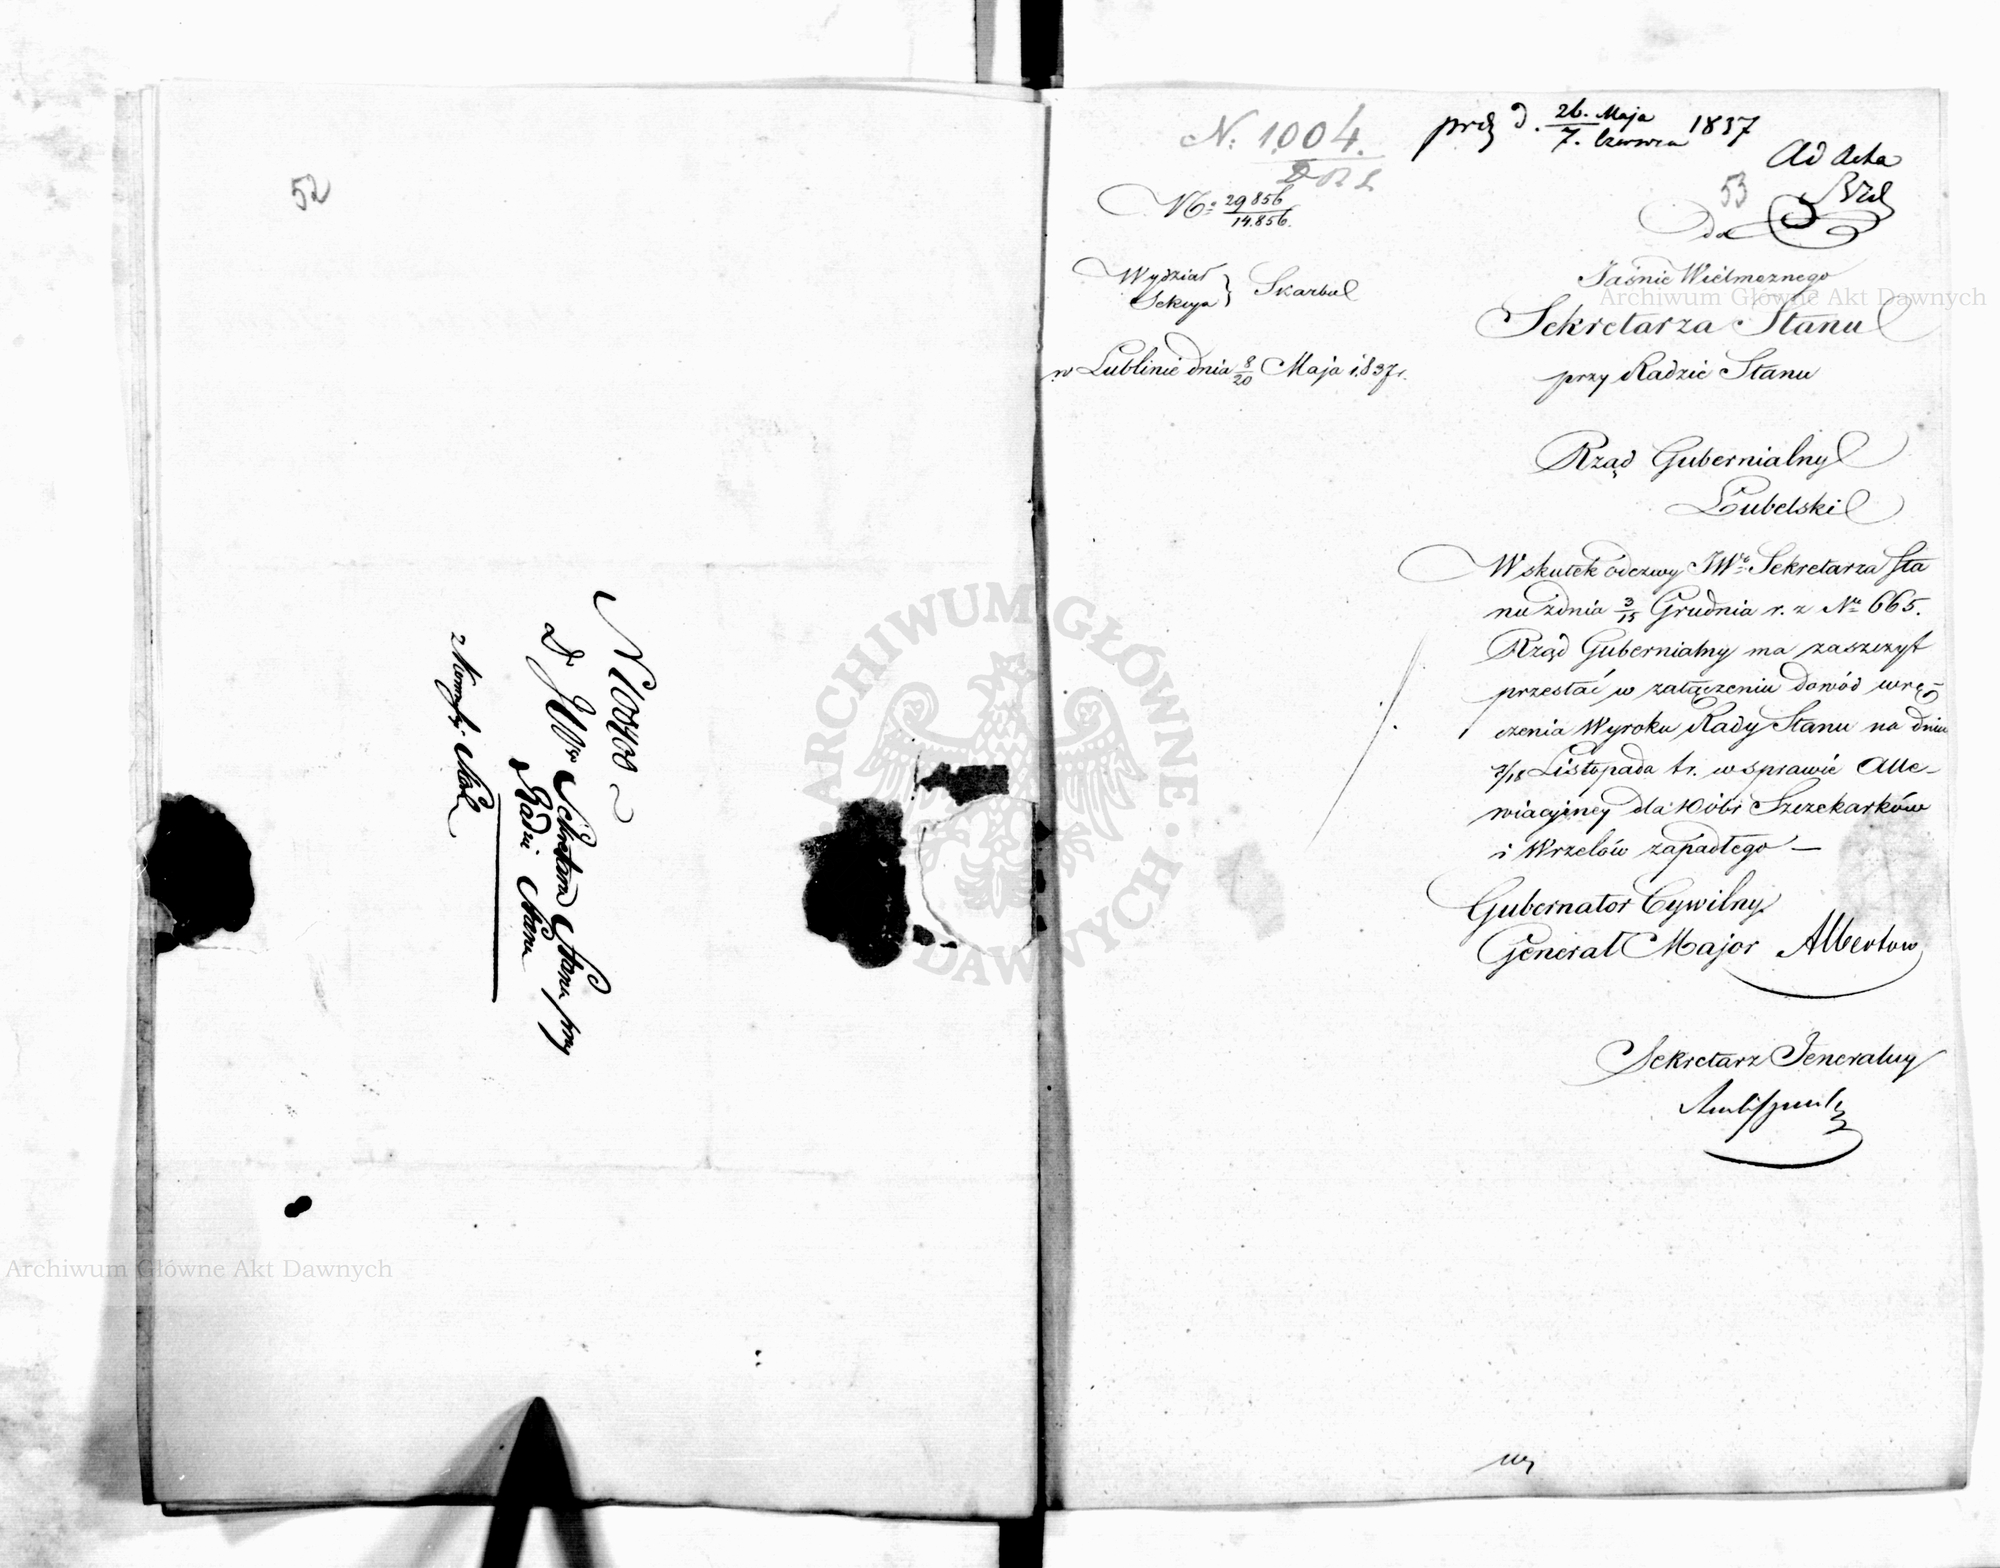 52
N 10700
D JWo Sekretarza Stanu przy
Radzie Stanu
z Kommissyi Skarbu
N: 1004.
prez d. 26. Maja / 7. Czerwca 1837
Ad Acta
53
No: 29856 / 14.856.
do
Wydział
Sekcya } Skarbu
Jaśnie Wielmoznego
Sekretarza Stanu
przy Radzie Stanu
w Lublinie dnia 8/20 Maja 1837 r.
Rząd Gubernialny
Lubelski
W skutek odezwy JWo Sekretarza Sta
nu zdnia 3/15 Grudnia r. z No 665.
Rząd Gubernialny ma zaszczyt
przesłać w załączeniu dowód wrę-
czenia Wyroku Rady Stanu na dniu
7/18 Listopada t r. w sprawie Alle-
wiacyiney dla Dóbr Szczekarków
i Wrzelów zapadłego —
Gubernator Cywilny
Generał Major Albertow
Sekretarz Jeneralny
Archiwum Główne Akt Dawnych
ARCHIWUM GŁÓWNE AKT DAWNYCH
Archiwum Główne Akt Dawnych